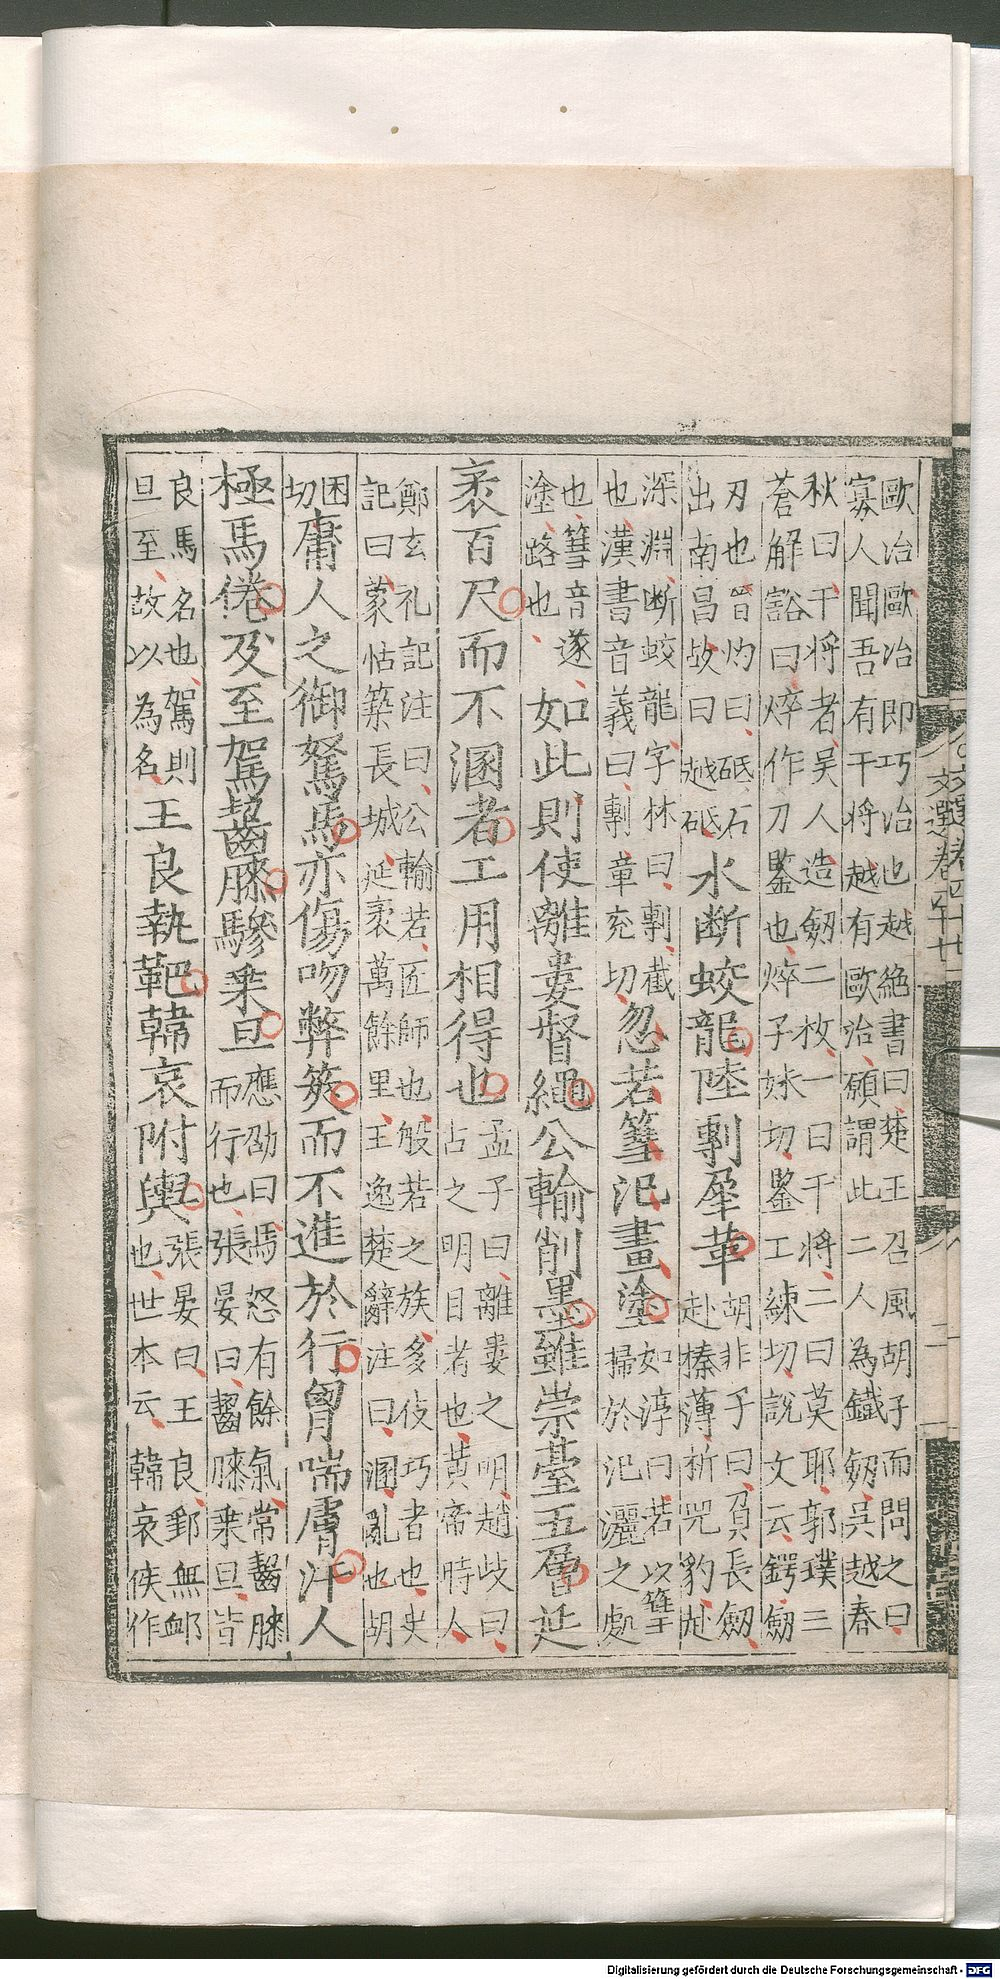 歐冶歐冶即巧冶也越絕書曰楚王召風胡子而問之曰
寡人聞吾有干將越有歐冶願謂此二人為鐵劒吳越春
秋曰干將者吳人造劒二枚一曰干將二曰莫耶郭璞三
蒼解豁曰焠作刀鑒也焠子妹切鑒工練切說文云鍔劒
刃也晉灼曰砥石
出南昌故曰越砥
水斷蛟龍陸剸犀革
胡非子曰負長劒
赴榛薄析兕豹赴
深淵斷蛟龍字林曰剸截
也漢書音義曰剸章兖切
忽若篲汜畫塗
如淳曰若以篲
掃於汜灑之處
也篲音遂
塗路也
如此則使離婁督繩公輸削墨雖崇臺五層延
袤百尺而不溷者工用相得也
孟子曰離婁之明趙歧曰
古之明目者也黃帝時人
鄭玄礼記注曰公輸若匠師也般若之族多伎巧者也史
記曰蒙恬築長城延袤萬餘里王逸楚辭注曰溷亂也胡
困
切
庸人之御駑馬亦傷吻弊筴而不進於行胷喘膚汗人
極馬倦及至駕齧膝驂乗旦
應劭曰馬怒有餘氣常齧膝
而行也張晏曰齧膝乗旦皆
良馬名也駕則
旦至故以為名
王良執靶韓哀附輿
張晏曰王良郵無䘏
也世本云韓哀侯作
文選卷四十七
二
Digitalisierung gefördert durch die Deutsche Forschungsgemeinschaft - DFG